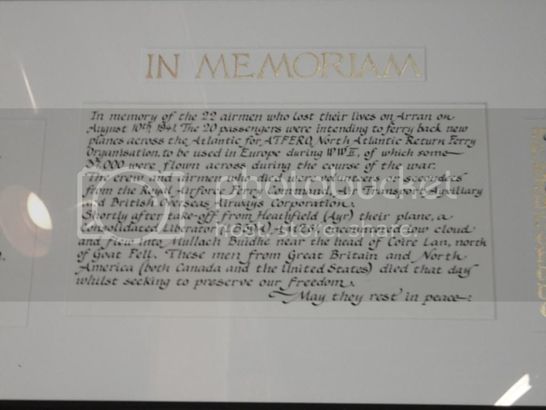 IN MEMORIAM
In memory of the 22 airmen who lost their lives on Arran on
August 10th 1941. The 20 passengers were intending to ferry back new
planes across the Atlantic for ATFERO, North Atlantic Return Ferry
Organisation, to be used in Europe during WWII, of which some
were flown across during the course of the war.
The crew and airmen who died were volunteers or seconded
from the Royal Airforce Ferry Command, Air Transport Auxiliary
and British Overseas Airways Corporation.
Shortly after take-off from Heathfield (Ayr) their plane, a
Consolidated Liberator encountered low cloud
and flew into Mullach Buidhe near the head of Coire Lan, north
of Goat Fell. These men from Great Britain and North
America (both Canada and the United States) died that day
whilst seeking to preserve our freedom.
May they rest in peace
photobucket